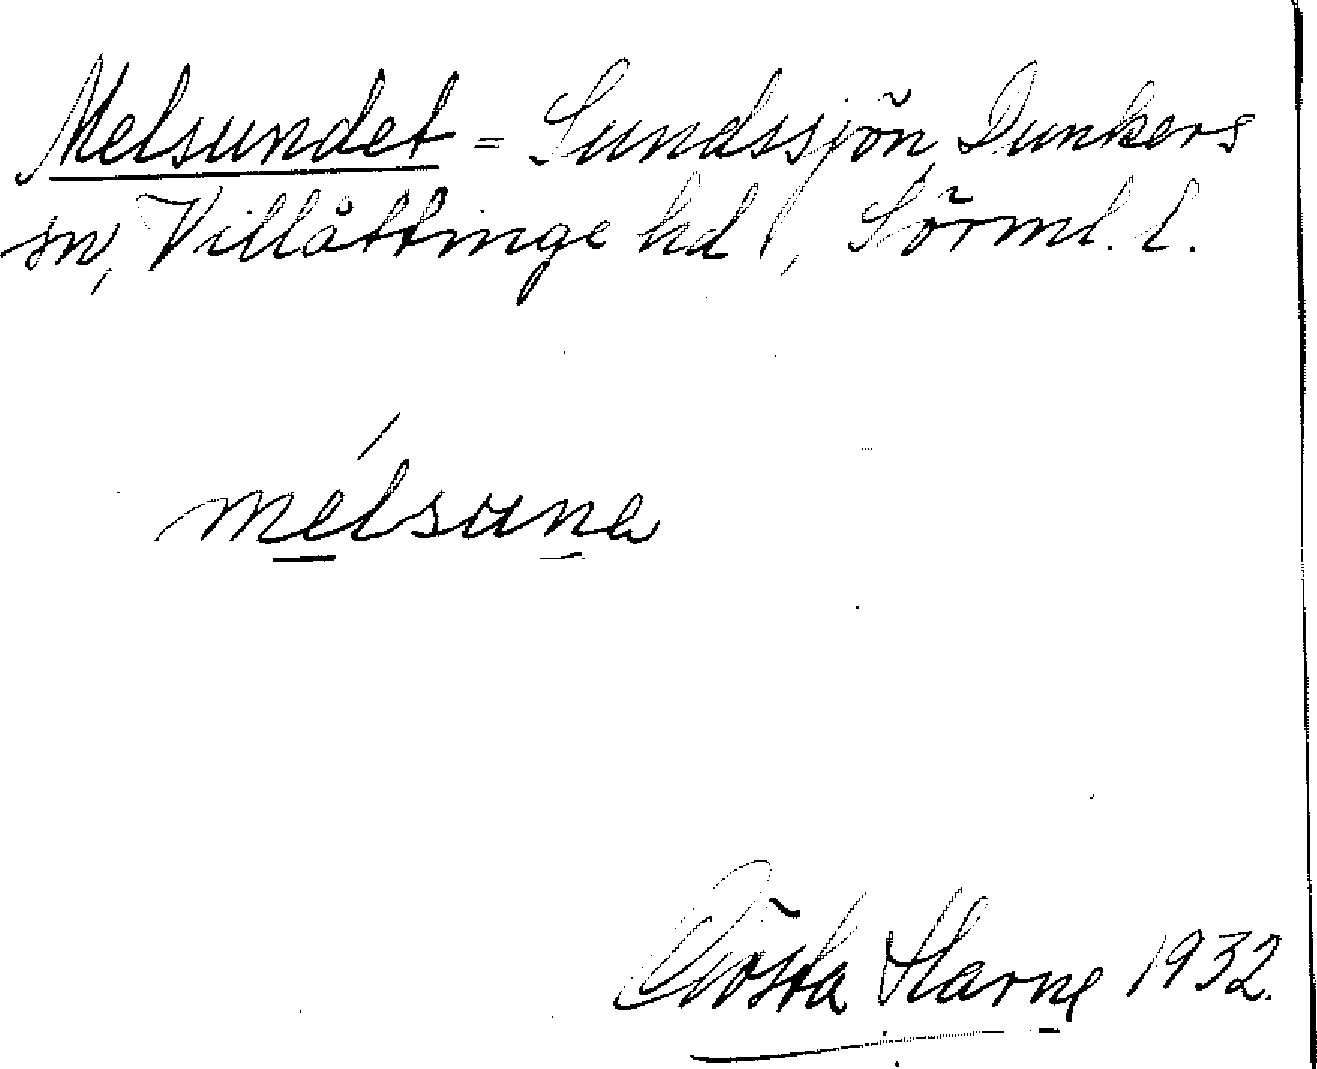 Melsundet = Sundssjön, Dunkers
sn, Villåttinge hd, Sörml. l.
mélsune
Gösta Starne 1932.